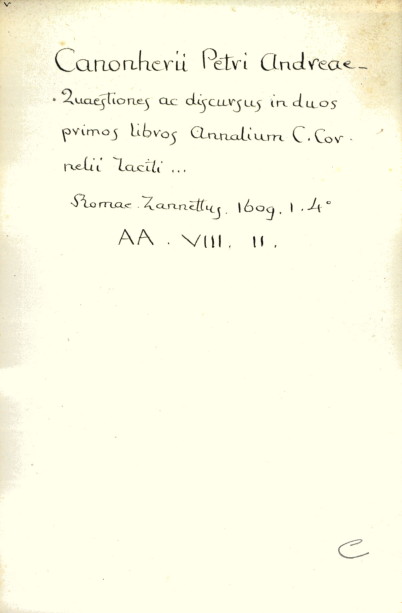 Canonherii Petri Andreae -
Quaestiones ac discursus in duos
primos libros Annalium C. Cor -
nelii Taciti ...
Romae. Zannettus. 1609. 1. 4°
AA. VIII. II.
C